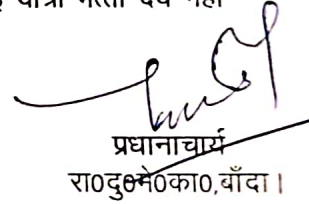 यात्रा भत्ता देय नहीं
प्रधानाचार्य
रा0दु0मे0का0,बाँदा।